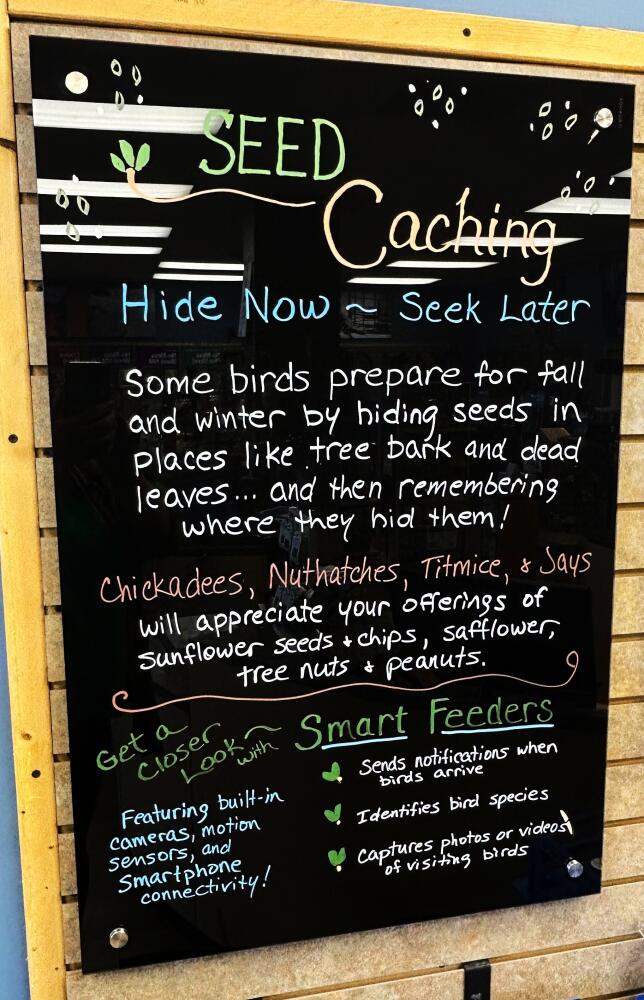 SEED
Caching
Hide Now ~ Seek Later
Some birds prepare for fall
and winter by hiding seeds in
places like tree bark and dead
leaves... and then remembering
where they hid them!
Chickadees, Nuthatches, Titmice, & Jays
will appreciate your offerings of
sunflower seeds + chips, safflower,
tree nuts & peanuts.
Get a
Closer
Look ~
with
Smart Feeders
Sends notifications when
birds arrive
Identifies bird species
Captures photos or videos
of visiting birds
Featuring built-in
cameras, motion
sensors, and
Smartphone
connectivity!